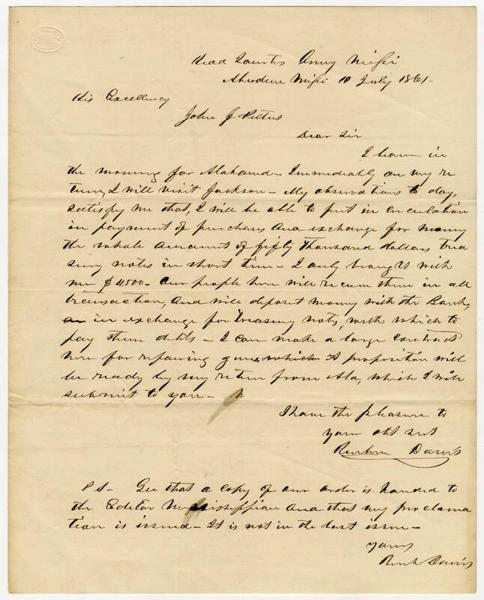 Head Quarters Army Missi
Aberdeen Missi 10 July 1861.
His Excellency
John J Pettus
Dear Sir
I leave in
the morning for Alabama - Immediately on my re
turn, I will visit Jackson - My observations to day,
satisfy me that, I will be able to put in circulation
in payment of purchases and exchange for money
the whole amount of fifty thousand dollars trea
sury notes in short time - I only brought with
me $4500 - Our people here will receive them in all
transaction, and will deposit money with the Bank,
in exchange for treasury notes, with which to
pay them debts - I can make a large contract
here for repairing guns, which A proposition will
be ready by my return from Ala, which I will
submit to you -
I have the pleasure to
your obt svt
Reuben Davis
P S - See that a copy of our order is handed to
the Editor Mississippian and that my proclama
tion is issued - It is not in the last issue -
yours
Reub Davis